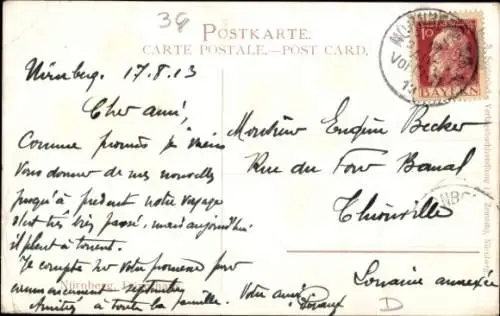 39
POSTKARTE.
CARTE POSTALE.—POST CARD.
NÜRNBERG
10
BAYERN
Nürnberg. 17.8.13
Cher ami,
Comme promis je viens
vous donner de mes nouvelles
jusqu'à présent notre voyage
s'est très bien passé, mais aujourd'hui
il pleut à torrent.
Je compte sur votre promesse pour
commencement septembre
Amitiés à toute la famille. Votre ami
Monsieur Eugène Becker
Rue du Four Banal
Thionville
Lorraine annexée
Nürnberg.
D